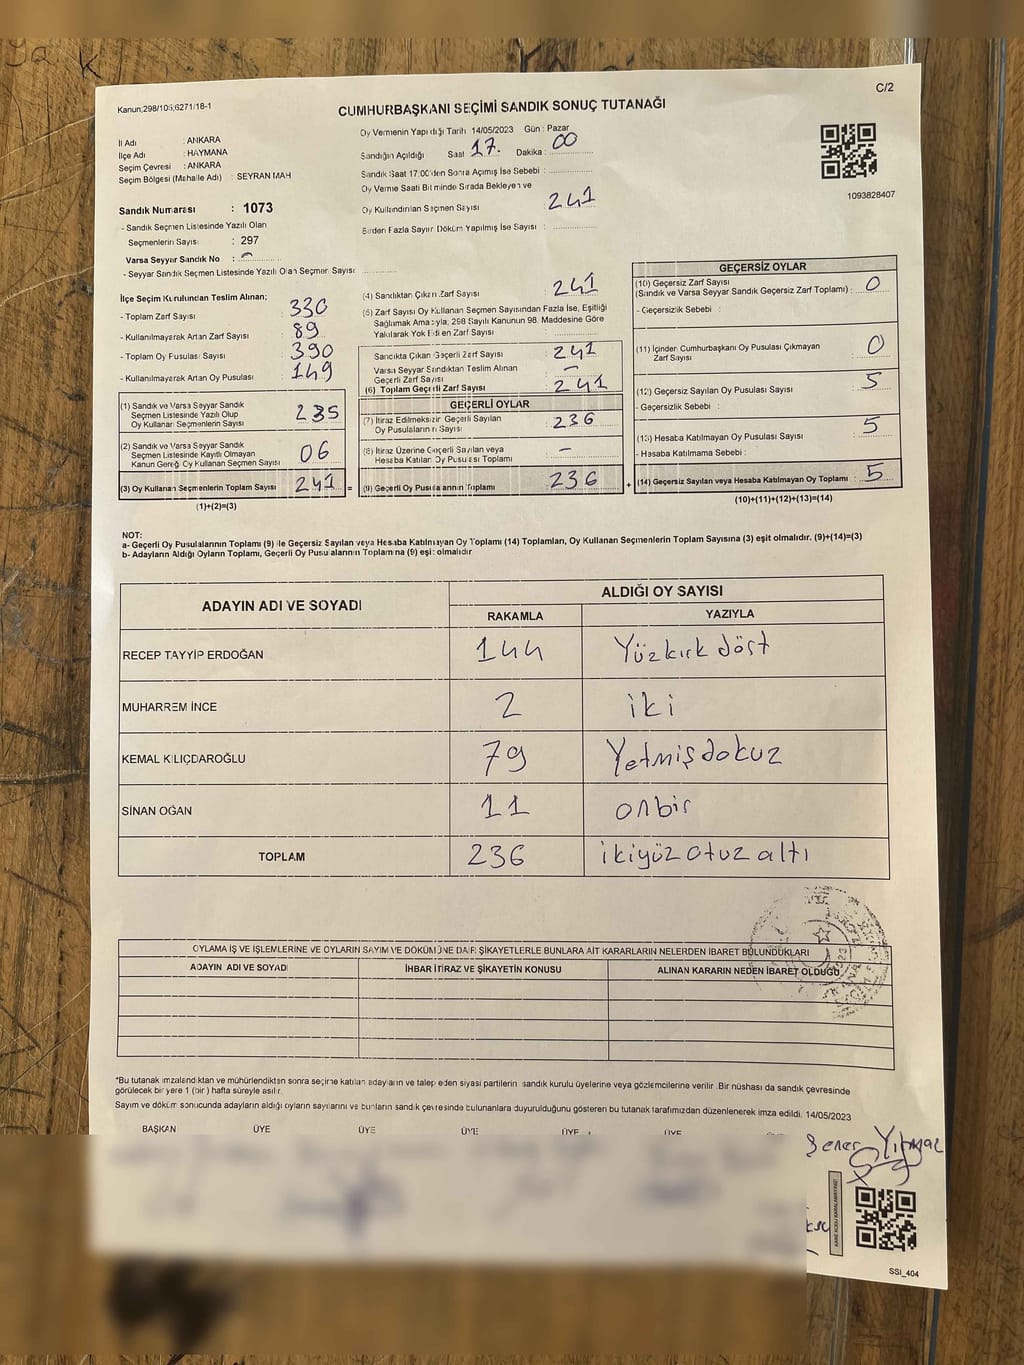 C/2
Kanun:298/105,6271/18-1
CUMHURBAŞKANI SEÇİMİ SANDIK SONUÇ TUTANAĞI
İl Adı : ANKARA
İlçe Adı : HAYMANA
Seçim Çevresi : ANKARA
Seçim Bölgesi (Mahalle Adı) : SEYRAN MAH
Oy Vermenin Yapıldığı Tarih 14/05/2023 Gün : Pazar
Sandığın Açıldığı Saat 17. Dakika : 00
Sandık Saat 17:00'den Sonra Açılmış İse Sebebi :
Oy Verme Saati Bitiminde Sırada Bekleyen ve
Oy Kullandırılan Seçmen Sayısı 241
Birden Fazla Sayım Döküm Yapılmış İse Sayısı :
1093828407
Sandık Numarası : 1073
- Sandık Seçmen Listesinde Yazılı Olan
Seçmenlerin Sayısı : 297
Varsa Seyyar Sandık No :
- Seyyar Sandık Seçmen Listesinde Yazılı Olan Seçmen Sayısı
İlçe Seçim Kurulundan Teslim Alınan;
- Toplam Zarf Sayısı : 330
- Kullanılmayarak Artan Zarf Sayısı : 89
- Toplam Oy Pusulası Sayısı : 390
- Kullanılmayarak Artan Oy Pusulası : 149
(1) Sandık ve Varsa Seyyar Sandık
Seçmen Listesinde Yazılı Olup
Oy Kullanan Seçmenlerin Sayısı : 235
(2) Sandık ve Varsa Seyyar Sandık
Seçmen Listesinde Kayıtlı Olmayan
Kanun Gereği Oy Kullanan Seçmen Sayısı : 06
(3) Oy Kullanan Seçmenlerin Toplam Sayısı : 241 =
(1)+(2)=(3)
(4) Sandıktan Çıkan Zarf Sayısı : 241
(5) Zarf Sayısı Oy Kullanan Seçmen Sayısından Fazla İse, Eşitliği
Sağlamak Amacıyla, 298 Sayılı Kanunun 98. Maddesine Göre
Yakılarak Yok Edilen Zarf Sayısı :
Sandıkta Çıkan Geçerli Zarf Sayısı : 241
Varsa Seyyar Sandıktan Teslim Alınan
Geçerli Zarf Sayısı : –
(6) Toplam Geçerli Zarf Sayısı : 241
GEÇERLİ OYLAR
(7) İtiraz Edilmeksizin Geçerli Sayılan
Oy Pusulalarının Sayısı : 236
(8) İtiraz Üzerine Geçerli Sayılan veya
Hesaba Katılan Oy Pusulası Toplamı : –
(9) Geçerli Oy Pusulalarının Toplamı : 236 +
GEÇERSİZ OYLAR
(10) Geçersiz Zarf Sayısı
(Sandık ve Varsa Seyyar Sandık Geçersiz Zarf Toplamı) : 0
- Geçersizlik Sebebi :
(11) İçinden Cumhurbaşkanı Oy Pusulası Çıkmayan
Zarf Sayısı : 0
(12) Geçersiz Sayılan Oy Pusulası Sayısı : 5
- Geçersizlik Sebebi :
(13) Hesaba Katılmayan Oy Pusulası Sayısı : 5
- Hesaba Katılmama Sebebi :
(14) Geçersiz Sayılan veya Hesaba Katılmayan Oy Toplamı : 5
(10)+(11)+(12)+(13)=(14)
NOT:
a- Geçerli Oy Pusulalarının Toplamı (9) ile Geçersiz Sayılan veya Hesaba Katılmayan Oy Toplamı (14) Toplamları, Oy Kullanan Seçmenlerin Toplam Sayısına (3) eşit olmalıdır. (9)+(14)=(3)
b- Adayların Aldığı Oyların Toplamı, Geçerli Oy Pusulalarının Toplamına (9) eşit olmalıdır
ADAYIN ADI VE SOYADI
ALDIĞI OY SAYISI
RAKAMLA YAZIYLA
RECEP TAYYİP ERDOĞAN 144 Yüzkırk dört
MUHARREM İNCE 2 iki
KEMAL KILIÇDAROĞLU 79 Yetmişdokuz
SİNAN OĞAN 11 onbir
TOPLAM 236 ikiyüz otuz altı
OYLAMA İŞ VE İŞLEMLERİNE VE OYLARIN SAYIM VE DÖKÜMÜNE DAİR ŞİKAYETLERLE BUNLARA AİT KARARLARIN NELERDEN İBARET BULUNDUKLARI
ADAYIN ADI VE SOYADI İHBAR İTİRAZ VE ŞİKAYETİN KONUSU ALINAN KARARIN NEDEN İBARET OLDUĞU
*Bu tutanak imzalandıktan ve mühürlendikten sonra seçime katılan adayların ve talep eden siyasi partilerin sandık kurulu üyelerine veya gözlemcilerine verilir. Bir nüshası da sandık çevresinde
görülecek bir yere 1 (bir) hafta süreyle asılır.
Sayım ve döküm sonucunda adayların aldığı oyların sayılarını ve bunların sandık çevresinde bulunanlara duyurulduğunu gösteren bu tutanak tarafımızdan düzenlenerek imza edildi. 14/05/2023
BAŞKAN ÜYE ÜYE ÜYE ÜYE ÜYE
Şener Yılmaz
KARE KODU KARALAMAYINIZ!
SSI_404